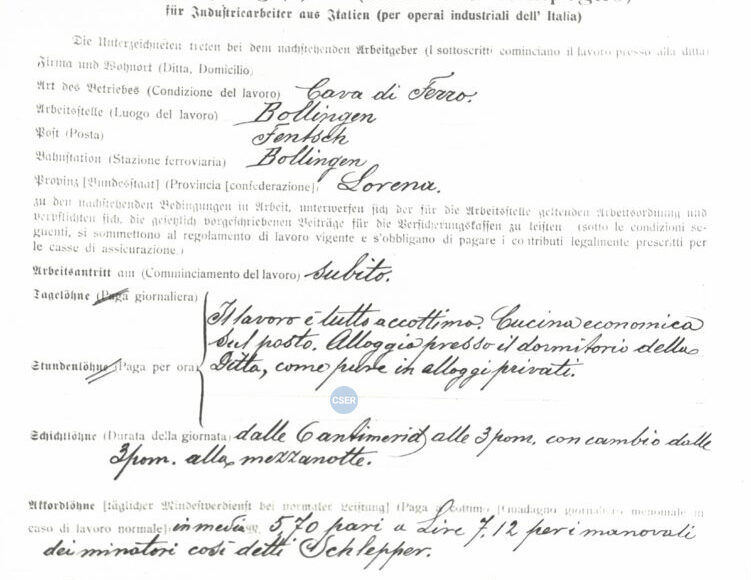 für Industriearbeiter aus Italien (per operai industriali dell' Italia)
Die Unterzeichneten treten bei dem nachstehenden Arbeitgeber (I sottoscritti cominciano il lavoro presso alla ditta)
Firma und Wohnort (Ditta, Domicilio)
Art des Betriebes (Condizione del lavoro) Cava di Ferro.
Arbeitsstelle (Luogo del lavoro) Bollingen
Post (Posta) Fentsch
Bahnstation (Stazione ferroviaria) Bollingen
Provinz [Bundesstaat] (Provincia [confederazione]) Lorena.
zu den nachstehenden Bedingungen in Arbeit, unterwerfen sich der für die Arbeitsstelle geltenden Arbeitsordnung und
verpflichten sich, die gesetzlich vorgeschriebenen Beiträge für die Versicherungskassen zu leisten (sotto le condizioni se-
guenti, si sommettono al regolamento di lavoro vigente e s'obbligano di pagare i contributi legalmente prescritti per
le casse di assicurazione.)
Arbeitsantritt am (Comminciamento del lavoro) subito.
Tagelöhne (Paga giornaliera)
Il lavoro è tutto accottimo. Cucina economica
sul posto. Alloggia presso il dormitorio della
Stundenlöhne (Paga per ora) Ditta, come pure in alloggi privati.
CSER
Schichtlöhne (Durata della giornata) dalle 6 antimerid alle 3 pom. con cambio dalle
3 pom. alla mezzanotte.
Akkordlöhne [täglicher Mindestverdienst bei normaler Leistung] (Paga a cottimo [Guadagno giornaliero in
caso di lavoro normale]) in media 5,70 pari a Lire 7,12 per i manovali
dei minatori così detti Schlepper.